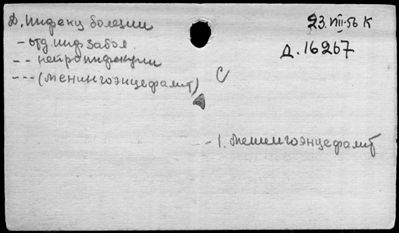 Д. Инфекц болезни
- отд инф забол.
-- нейроинфекции
--- (менингоэнцефалит)
23.VIII-56 К
Д.16267
С
- 1. Менингоэнцефалит